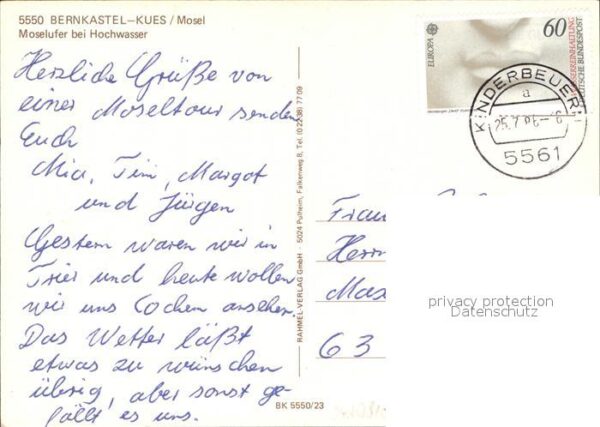 5550 BERNKASTEL-KUES / Mosel
Moselufer bei Hochwasser
Herzliche Grüße von
einer Moseltour senden
Euch
Mia, Tim, Margot
und Jürgen
Gestern waren wir in
Trier und heute wollen
wir uns Cochen ansehen.
Das Wetter läßt
etwas zu wünschen
übrig, aber sonst ge-
fällt es uns.
BK 5550/23
RAHMEL-VERLAG GmbH · 5024 Pulheim, Falkenweg 8, Tel. (0 22 38) 77 09
EUROPA
60
DEUTSCHE BUNDESPOST
KINDERBEUERN
a
25.7.86
5561
Frau
Herrn
Max
63
privacy protection
Datenschutz